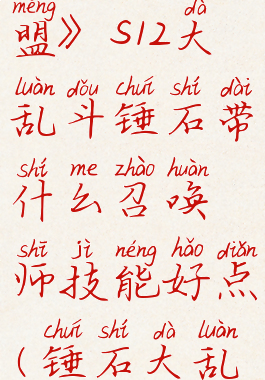 méng dà
盟》S12大
luàn dǒu chuí shí dài
乱斗锤石带
shí me zhào huàn
什么召唤
shī jì néng hǎo diǎn
师技能好点
chuí shí dà luàn
（锤石大乱